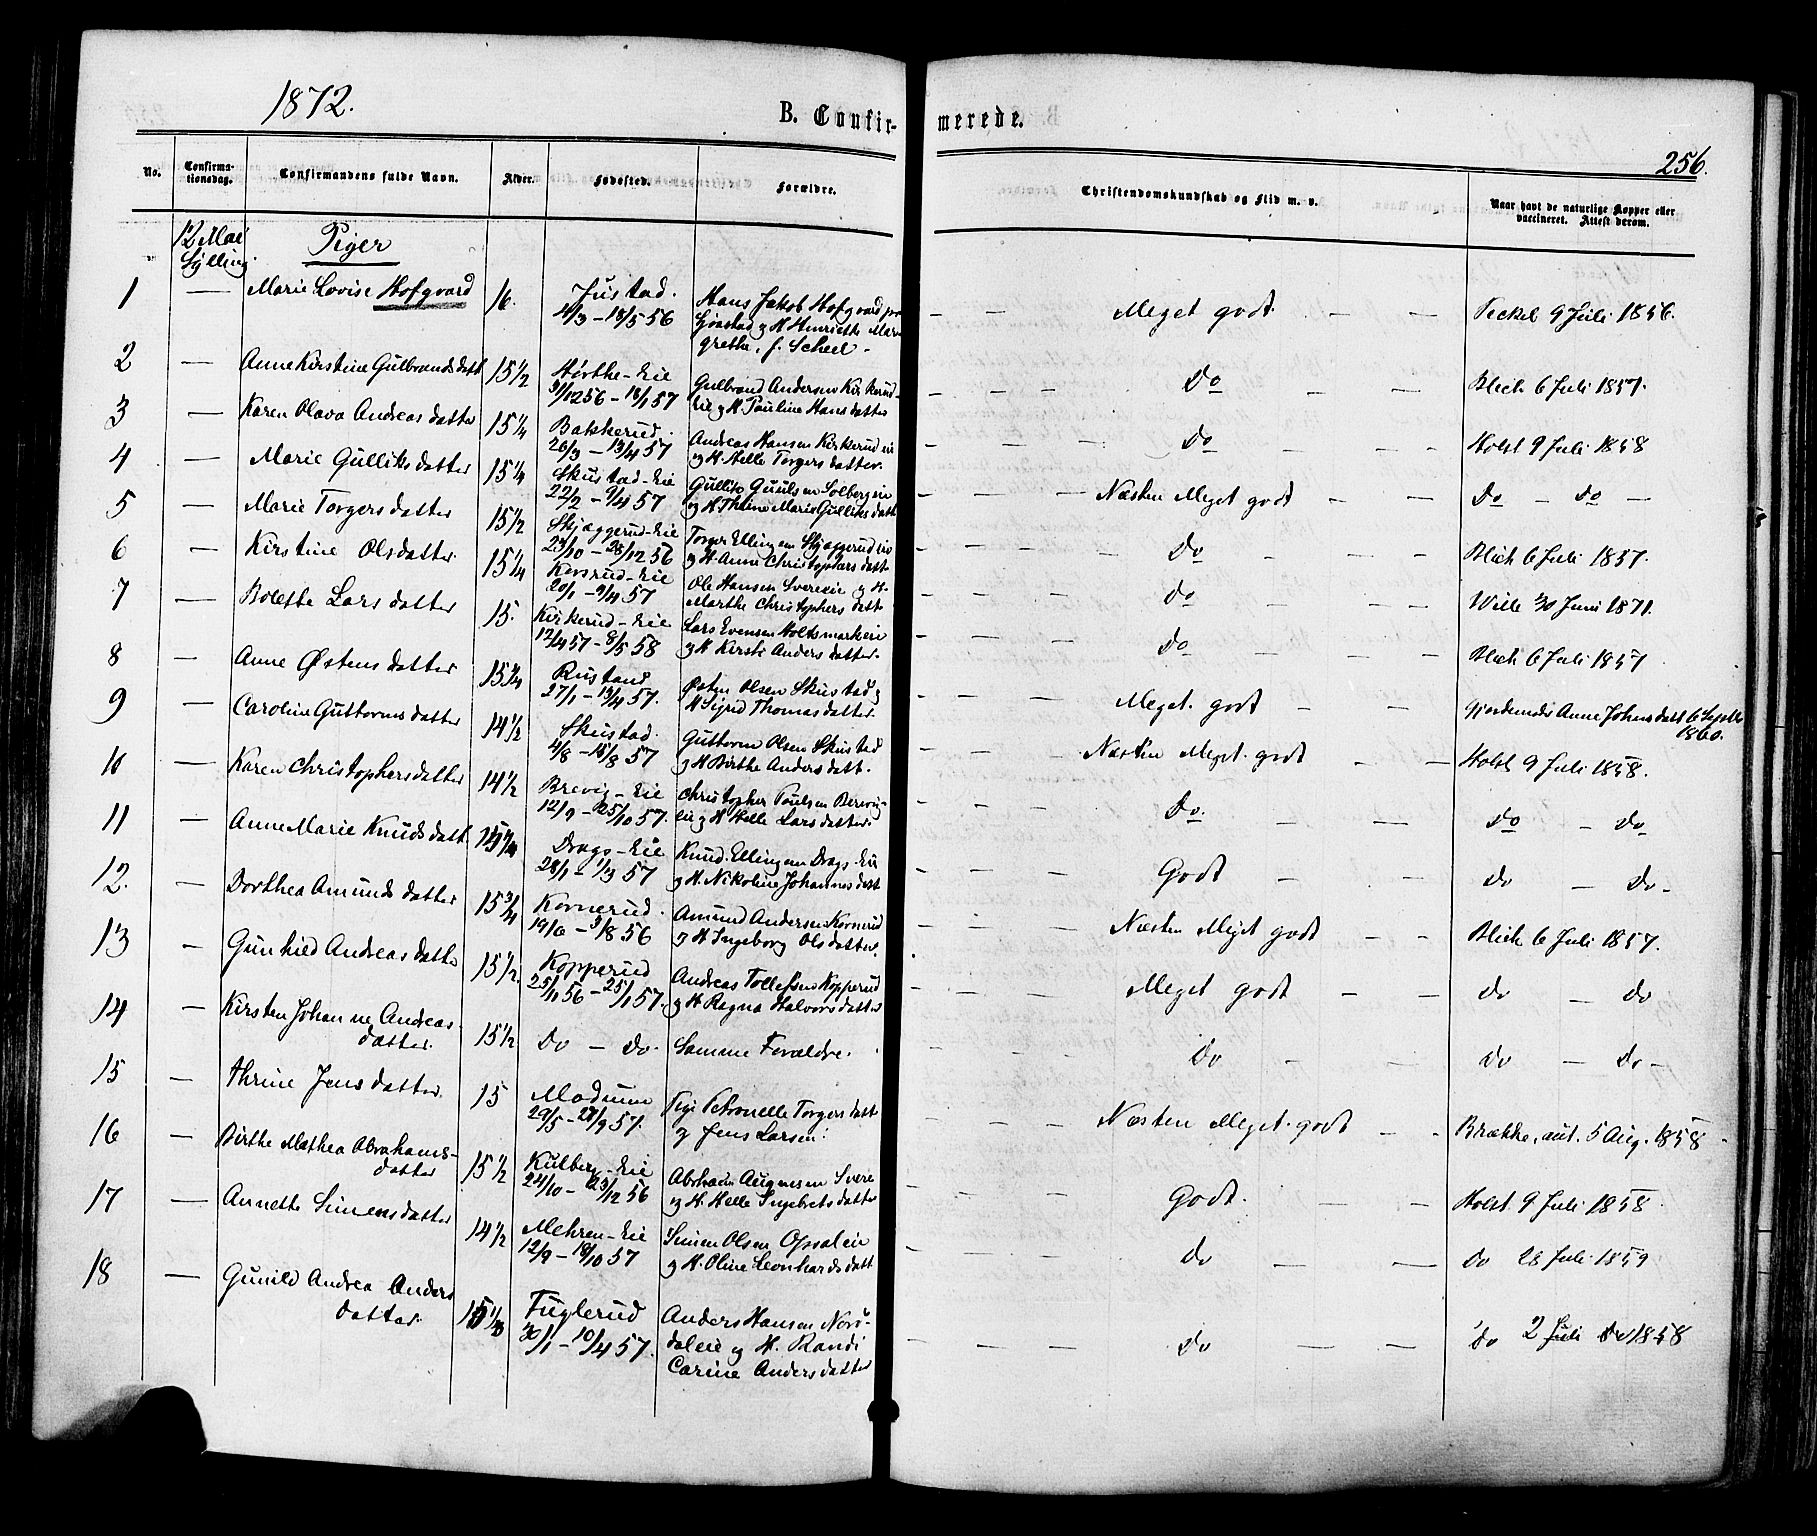 1872.
B. Confir-
merede.
256.
No.
Confirma-
tionsdag.
Confirmandens fulde Navn.
Alder.
Fødested.
Forældre.
Christendomskundskab og Flid m. v.
Naar havt de naturlige Kopper eller
vaccineret. Attest derom.
12 Mai
Sylling.
Piger
1 — Marie Lovise Hofgaard 16. Justad.
4/3 – 18/5 56
Hans Jakob Hofgaard
og H Henriette Mar-
grethe, f. Scheel -
— — Meget godt — — 9 Juli 1856.
2 — Anne Kirstine Gulbrandsdatt 15 1/2 Hørthe-Eie
31/12 56 – 18/1 57
Gulbrand Andersen Kirkerud-
eie og H Pauline Hansdatter
— — — Do — — Blich 6 Juli 1857.
3 — Karen Olava Andreasdatter 15 1/4 Bakkerud.
26/3 – 13/4 57
Andreas Hansen Kirkerud eie
og H. Helle Torgersdatter.
— — — Do — — Holst 9 Juli 1858
4 — Marie Gulliksdatter 15 1/4 Skustad-Eie
22/2 – 9/4 57
Gullik Solberg eie
og H Thrine Marie Gulliksdatt
— — — Næsten Meget godt — — Do — Do —
5 — Marie Torgersdatter 15 1/2 Skjæggerud-Eie
23/10 – 28/12 56
Torger Ellingsen Skjæggerud eie
og H. Anne Christophersdatt
— — — Do — — Blich 6 Juli 1857.
6 — Kirstine Olsdatter. 15 1/4 Eie
20/1 – 9/4 57
Ole Hansen Svereeie og H.
Marthe Christophersdatt
— — — Do — — Wille 30 Juni 1871.
7 — Bolette Larsdatter 15. Kirkerud-Eie
12/4 57 – 8/5 58
Lars Evensen Holtsmarkeie
og H Kirsti Andersdatter.
— — — Do — — Blich 6 Juli 1857
8 — Anne Østensdatter 15 1/4 Rustand
27/1 – 13/4 57.
Østen Olsen Skustad og
H Sigrid Thomasdatter.
— — — Meget godt — Gjordemoder Anne Johnsdatt 6 Septbr
1860.
9 — Caroline Guttormsdatter 14 1/2 Skustad.
4/8 – 15/8 57
Guttorm Olsen Skustad
og H Birthe Andersdatt.
— — — Næsten Meget godt — — Holst 9 Juli 1858.
10 — Karen Christophersdatter 14 1/2 Brevig-Eie
12/9 – 25/10 57.
Christopher Paulsen Berevig-
eie og H Helle Larsdatter.
— — — Do. — — Do — Do
11 — Anne Marie Knudsdatt. 15 1/4 Drags-Eie
28/1 – 1/3 57
Knud Ellingsen Drags-Eie
og H. Nikoline Johannesdatt
— — — Godt — — Do — Do -
12. — Dorthea Amundsdatter 15 3/4 Kornerud.
19/6 – 3/8 56
Amund Andersen Kornerud
og H Ingeborg Olsdatter.
— — — Næsten Meget godt — — Blich 6 Juli 1857.
13 — Gunhild Andreasdatter 15 1/2. Kopperud
25/11 56 – 25/1 57.
Andreas Tollefsen Kopperud
og H. Ragna Halvorsdatter
— — — Meget godt — — Do — Do
14 — Kirsten Johanne Andreas-
datter. 15 1/2 Do — Do. Samme Forældre.
— — — Do — — Do — Do -
15 — Thrine Jensdatter. 15 Modum
29/5 – 27/9 57.
Pige Petronelle Torgersdatt
og Jens Larsen.
— — — Næsten Meget godt — — Brække, aut. 5 Aug. 1858
16 — Birthe Mathea Abrahams-
datter 15 1/2 Kulberg-Eie
24/10 – 23/12 56
Abraham Svere
og H. Helle Ingebretsdatter
— — — Godt. — — Holst 9 Juli 1858.
17 — Annette Simensdatter 14 1/2 Mehren-Eie
12/9 – 18/10 57
Simen Olsen Opsaleie
og H. Oline Leonhardsdatt
— — — Do — — Do 28 Juli 1859
18 — Gunild Andrea Anders
datter. 15 Fuglerud
30/1 – 10/4 57.
Anders Hansen Nor-
daleie og H. Randi
Carine Andersdatter
— — — Do — — Do 2 Juli 1858